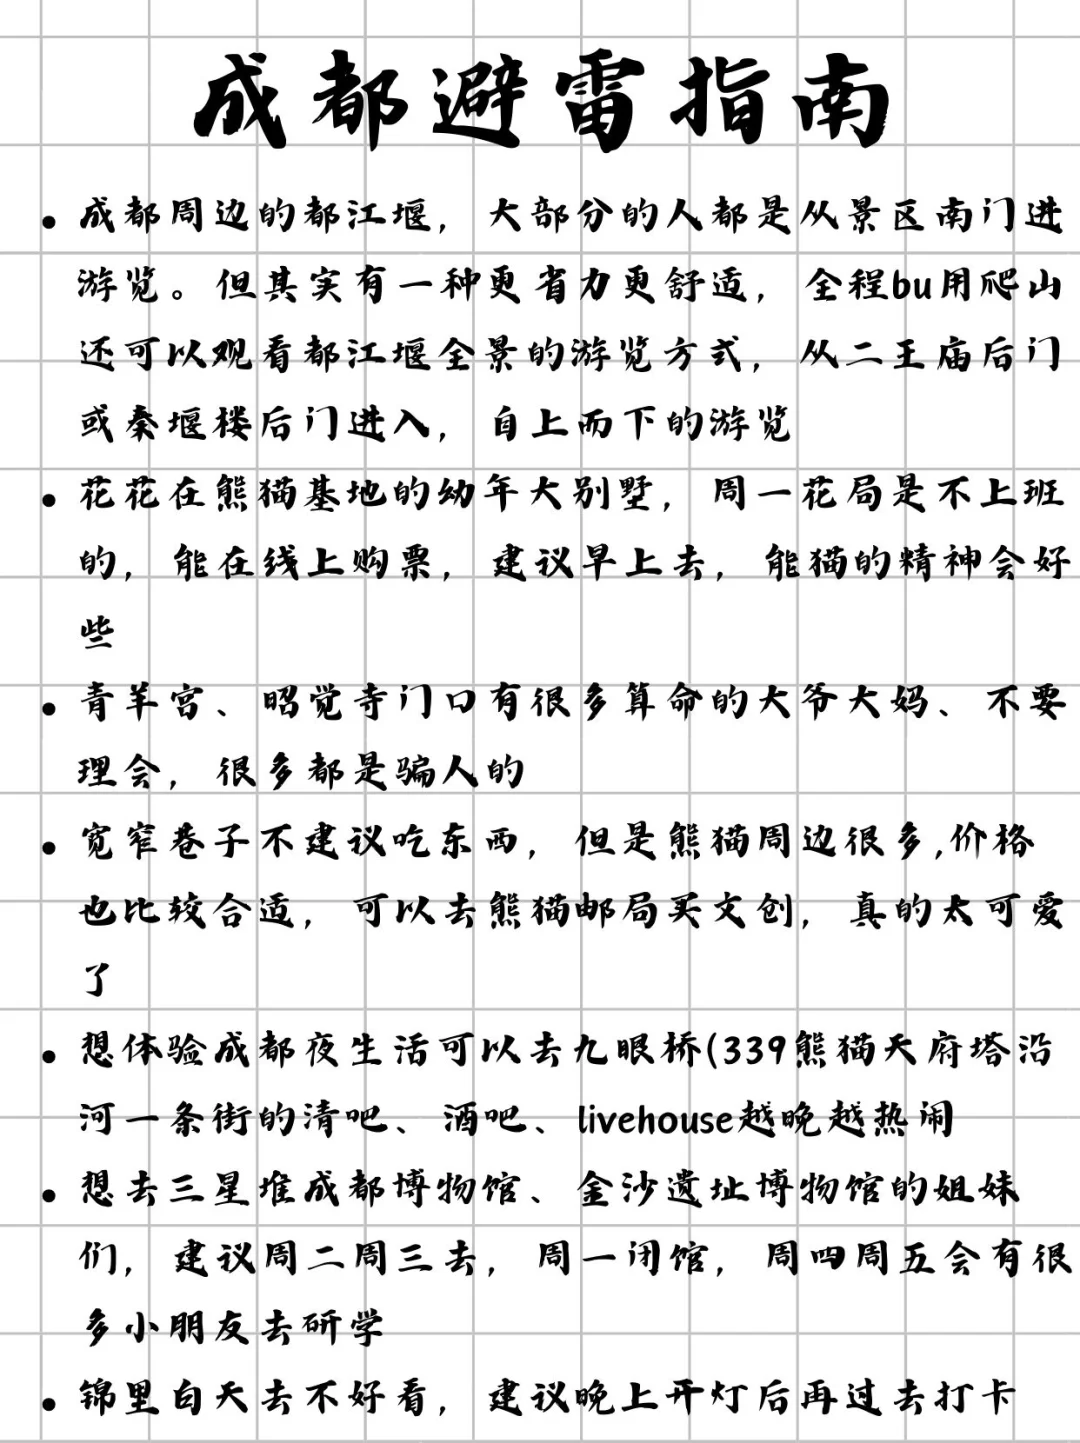 成都避雷指南
成都周边的都江堰，大部分的人都是从景区南门进
游览。但其实有一种更省力更舒适，全程bu用爬山
还可以观看都江堰全景的游览方式，从二王庙后门
或秦堰楼后门进入，自上而下的游览
花花在熊猫基地的幼年大别墅，周一花局是不上班
的，能在线上购票，建议早上去，能猫的精神会好
些
青羊宫、昭觉寺门口有很多算命的大爷大妈、不要
理会，很多都是骗人的
宽窄巷子不建议吃东西，但是熊猫周边很多,价格
也比较合适，可以去熊猫邮局买文创，真的太可爱
了
想体验成都夜生活可以去九眼桥(339熊猫天府塔沿
河一条街的清吧、酒吧、livehouse越晚越热闹
想去三星堆成都博物馆、金沙遗址博物馆的姐妹
们，建议周二周三去，周一闭馆，周四周五会有很
多小朋友去研学
锦里白天去不好看，建议晚上开灯后再过去打卡